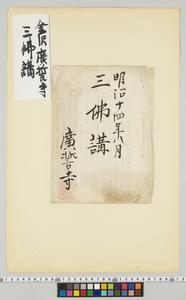 金沢廣誓寺
三佛講
明治十四年八月
三佛講
廣誓寺